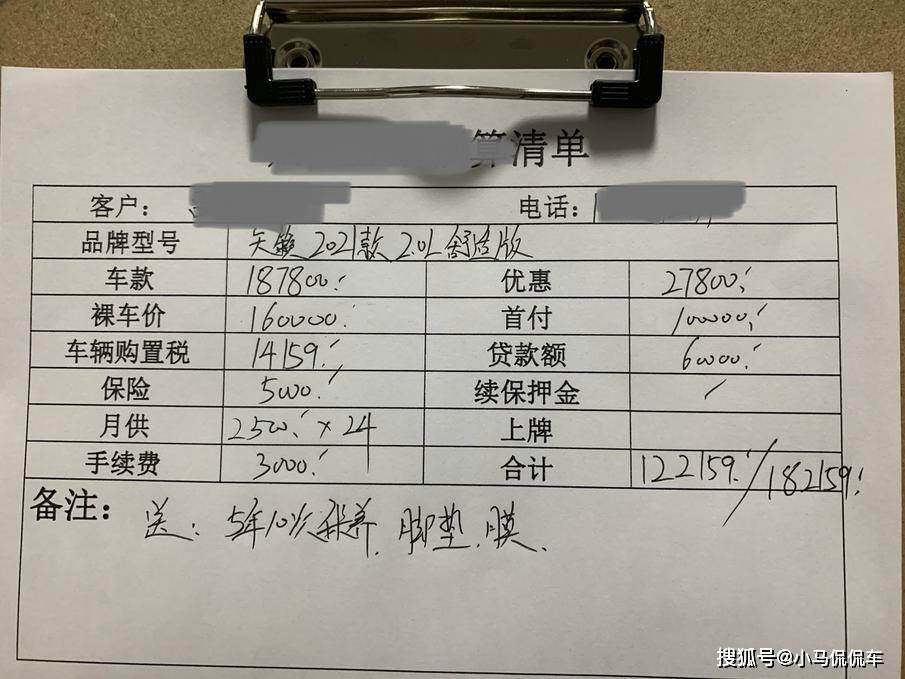 算清单
客户： 电话：
品牌型号 天籁2021款2.0L舒适版
车款 187800. 优惠 27800.
裸车价 160000. 首付 100000.
车辆购置税 14159. 贷款额 60000.
保险 5000. 续保押金 /
月供 2500. × 24 上牌
手续费 3000. 合计 122159./182159.
备注： 送：5年10次保养、脚垫、膜、
搜狐号@小马侃侃车